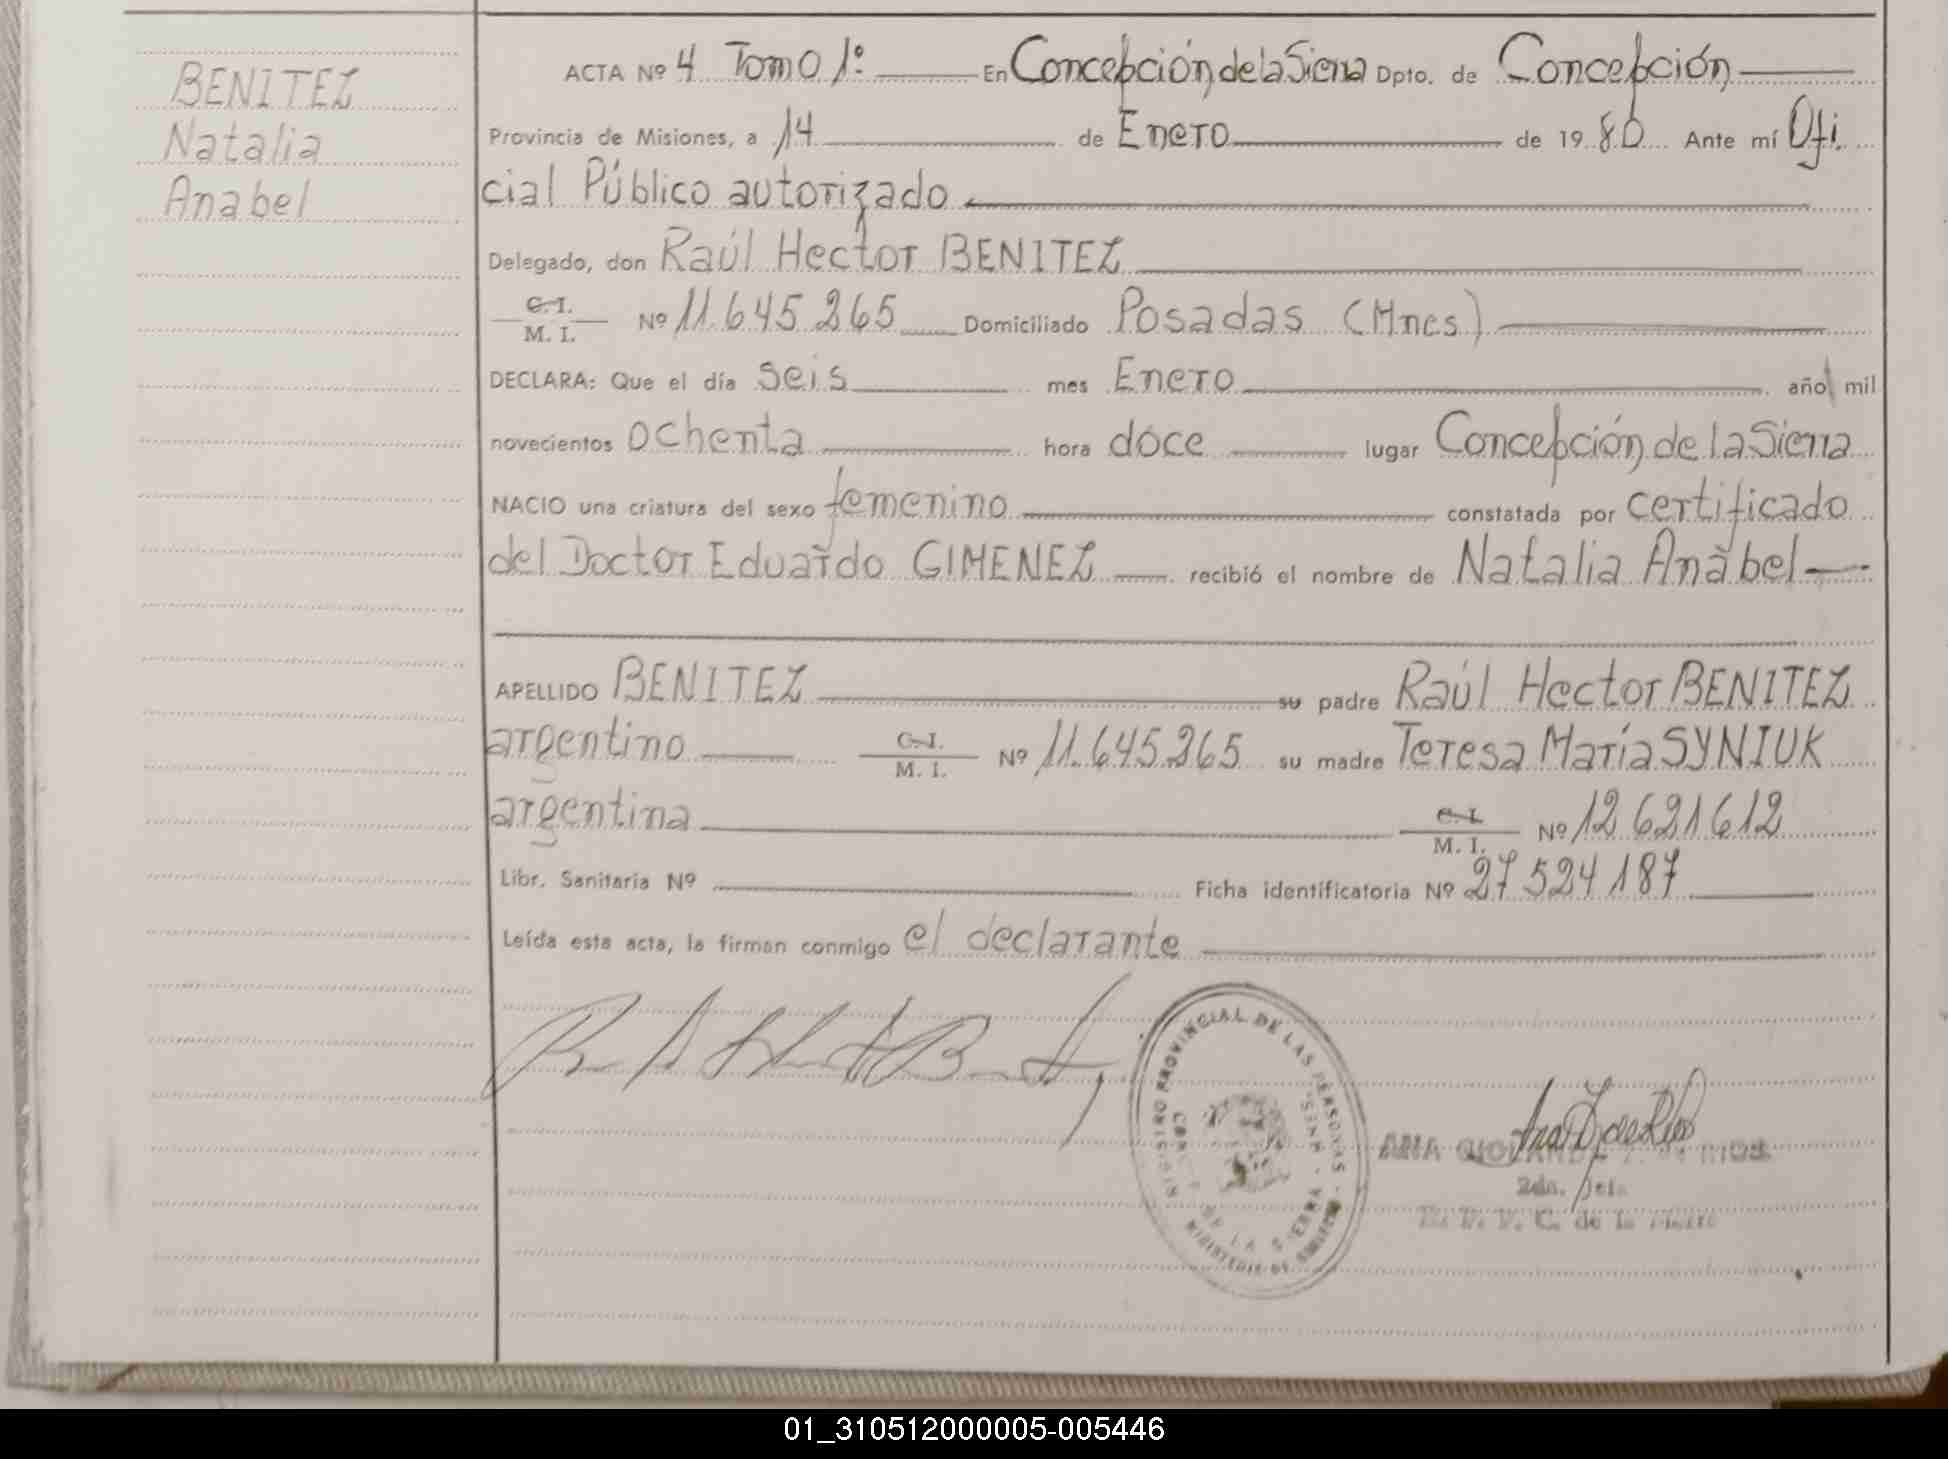 BENITEZ
Natalia
Anabel
ACTA Nº 4 Tomo 1º En Concepción de la Sierra Dpto. de Concepción
Provincia de Misiones, a 14 de Enero de 1980 Ante mí Ofi.
cial Público autorizado
Delegado, don Raúl Hector BENITEZ
C. I.
M. I. Nº 11.645.265 Domiciliado Posadas (Mnes)
DECLARA: Que el día seis mes Enero año mil
novecientos ochenta hora doce lugar Concepción de la Sierra
NACIO una criatura del sexo femenino constatada por certificado
del Doctor Eduardo GIMENEZ recibió el nombre de Natalia Anabel
APELLIDO BENITEZ su padre Raúl Hector BENITEZ
argentino C. I. M. I. Nº 11.645.265 su madre Teresa María SYNIUK
argentina C. I. M. I. Nº 12 621612
Libr. Sanitaria Nº Ficha identificatoria Nº 27 524 187
Leída esta acta, la firman conmigo el declarante
REGISTRO PROVINCIAL DE LAS PERSONAS
DE LA SIERRA
MINISTERIO DE
ANA DE RIOS
2da. Jefe
C. de la Sierra
01_310512000005-005446